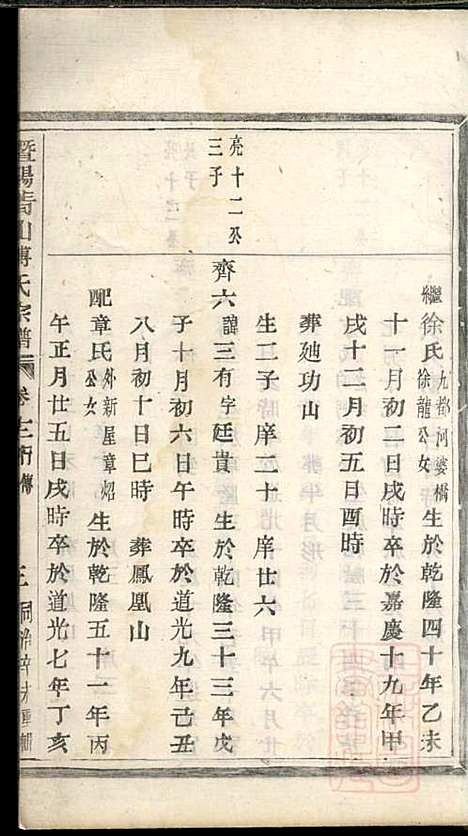 繼徐氏九都河婆橋徐龍公女生於乾隆四十年乙未
十一月初二日戌時卒於嘉慶十九年甲
戌十二月初五日酉時
葬𡊮功山
生二子庠二十庠廿六
亮十二公三子
齊六諱三有字廷貴生於乾隆三十三年戊
子十月初六日午時卒於道光九年己丑
八月初十日巳時葬鳳凰山
配章氏外新屋章炤公女生於乾隆五十一年丙
午正月廿五日戌時卒於道光七年丁亥
暨陽靑山傅氏宗譜卷 行傳